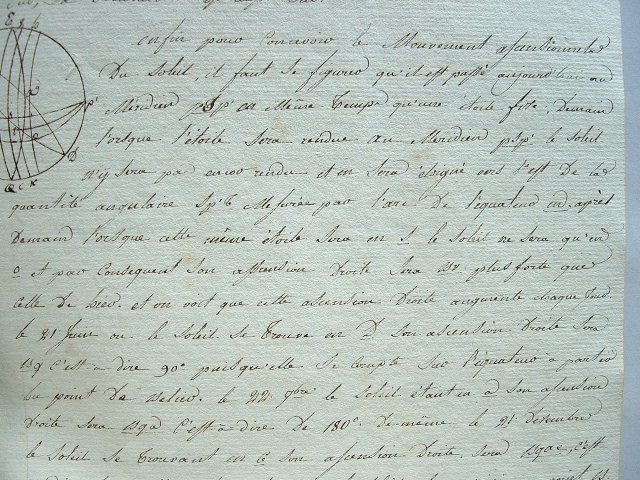 enfin pour Concevoir le Mouvement assensionnel
Du Soleil, il faut se figurer qu'il est passé aujourd'hui au
Méridien psp' en Même Temps qu'une étoile fixe. Demain
Lorsque l'étoile Sera rendue au Meridien psp' le Soleil
n'y Sera pas encor rendu et en Sera éloigné vers l'est De la
quantité angulaire Mesurée par l'arc De l'equateur après
Demain Lorsque cette même étoile Sera en le Soleil ne Sera qu'en
o et par Consequent Son assension Droite Sera plus forte que
Celle De hier. et on voit que cette ascension Droite augmente Chaque Jour.
le 21 Juin ou le Soleil Se Trouve en D Son ascension Droite Sera
C'est à dire 90° puisqu'elle Se Compte Sur l'équateur à partir
Du point le 22 7bre le Soleil étant Son assension
Droite Sera C'est à dire De 180°. De même le 21 Decembre
le Soleil Se Trouvant en Son assension Droite, Sera C'est